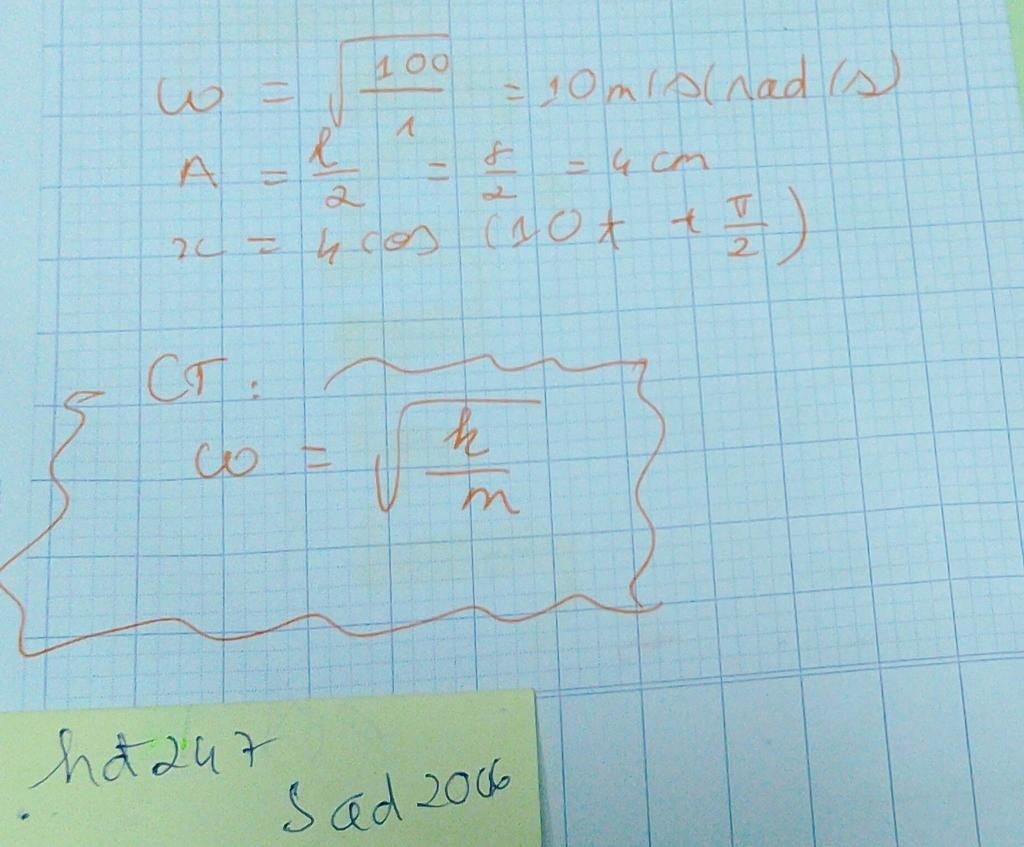 ω = √(100/1) = 10 m/s (rad/s)
A = l/2 = 8/2 = 4 cm
x = 4 cos (10t + π/2)
CT :
ω = √(k/m)
hđ247
Sad2006